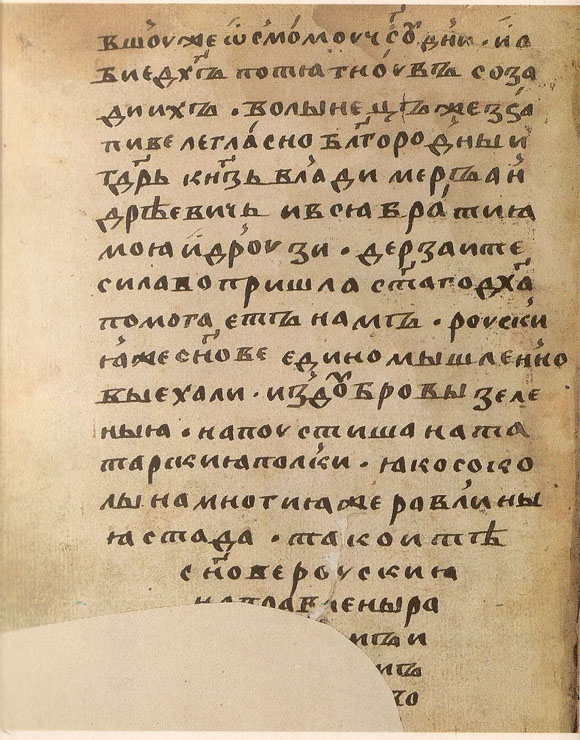 вшоу же ѿсмомоу чсоу дни · и а
бие дхъ потѧтноувъ соза
ди ихъ · волынецъ же зва
пи велегласно блгородныи
гдрь кнзь владимеръ ан
дрѣевичь и всѧ братиꙗ
моꙗ и дроузи · дерзаите
сила бо пришла стаго дха
помогаетъ намъ · роуски
ꙗ же снове единомышленно
выехали · из доубровы зеле
ныꙗ · напоустиша на та
тарскиꙗ полки · ꙗко соко
лы на многиꙗ жеравлины
ꙗ стада · тако и тѣ
снове роускиꙗ
направлены ра
мъ и
мъ